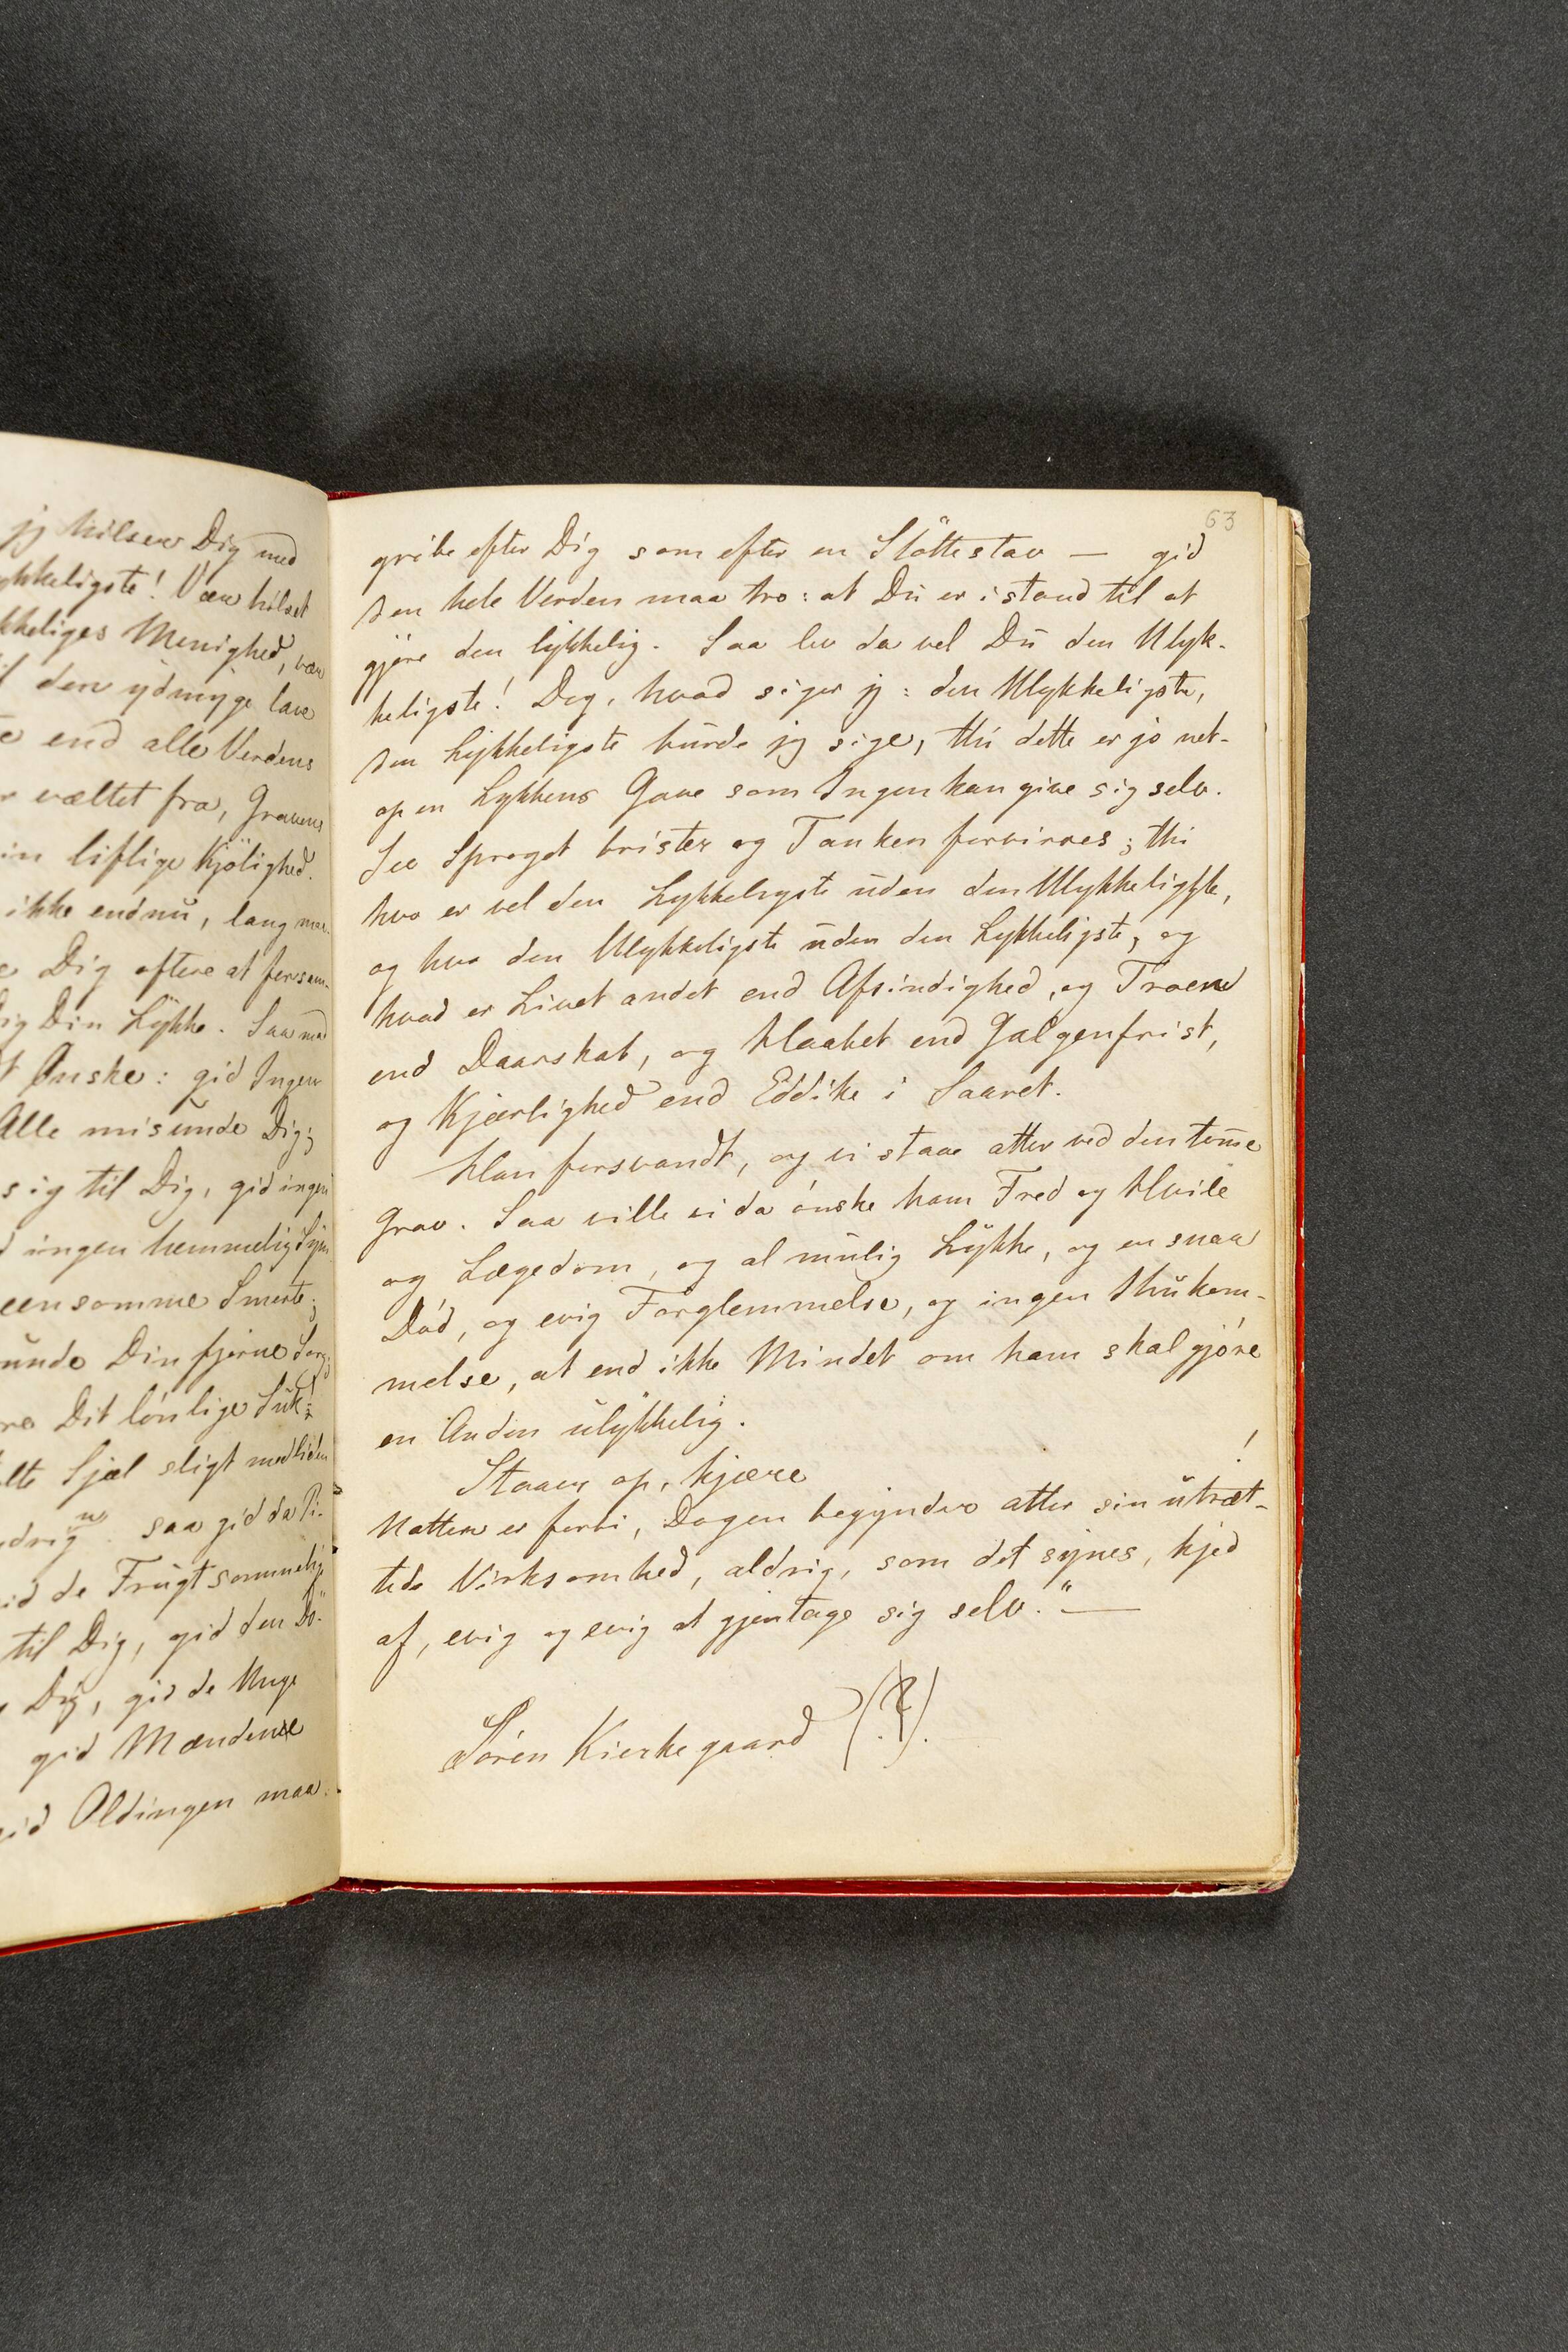 jg hilser Dig med
ykkeligste! Vær hilset
kkeliges Menighed, vær
den ydmyge lave
end alle Verdens
væltet fra, Gravens
in liflige Kjölighed.
ikke endnu, lang mar-
Dig oftere at forsam-
ig Din Lykke. Saa mod
t Ønske: gid Ingen
Alle misunde Dig;
sig til Dig, gid ingen
ingen hemmelig Syn
eensomme Smerte;
unde Din fjerne Sorg;
Dit lönlige Suk;
lte Sjæl sligt medliden
drig saa gid da Pi-
id de Frugtsommelige
til Dig, gid den Dö-
Dig, gid de Unge
gid Mændene
gid Oldingen maa
63
gribe efter Dig som efter en Stöttestav — gid
den hele Verden maa tro: at Du er istand til at
gjöre den lykkelig. Saa lev da vel Du den Ulyk-
keligste! Dog, hvad siger jg: den Ulykkeligste,
den Lykkeligste burde jg sige, thi dette er jo net-
op en Lykkens Gave som Ingen kan give sig selv.
See Sproget brister og Tanken forvirres; thi
hvo er vel den Lykkeligste uden den Ulykkeligste,
og hvo den Ulykkeligste uden den Lykkeligste, og
hvad er Livet andet end Afsindighed, og Troen
end Daarskab, og Haabet end Galgenfrist,
og Kjærlighed end Eddike i Saaret.
Han forsvandt, og vi staae atter ved den tom̄e
Grav. Saa ville vi da önske ham Fred og Hvile
og Lægedom, og al mulig Lykke, og en snar
Död, og evig Forglemmelse, og ingen Ihukom-
melse, at end ikke Mindet om ham skal gjöre
en Anden ulykkelig.
Staaer op, kjære !
Natten er forbi, Dagen begynder atter sin utræt-
tede Virksomhed, aldrig, som det synes, kjed
af, evig og evig at gjentage sig selv." —
Sören Kierkegaard (?).